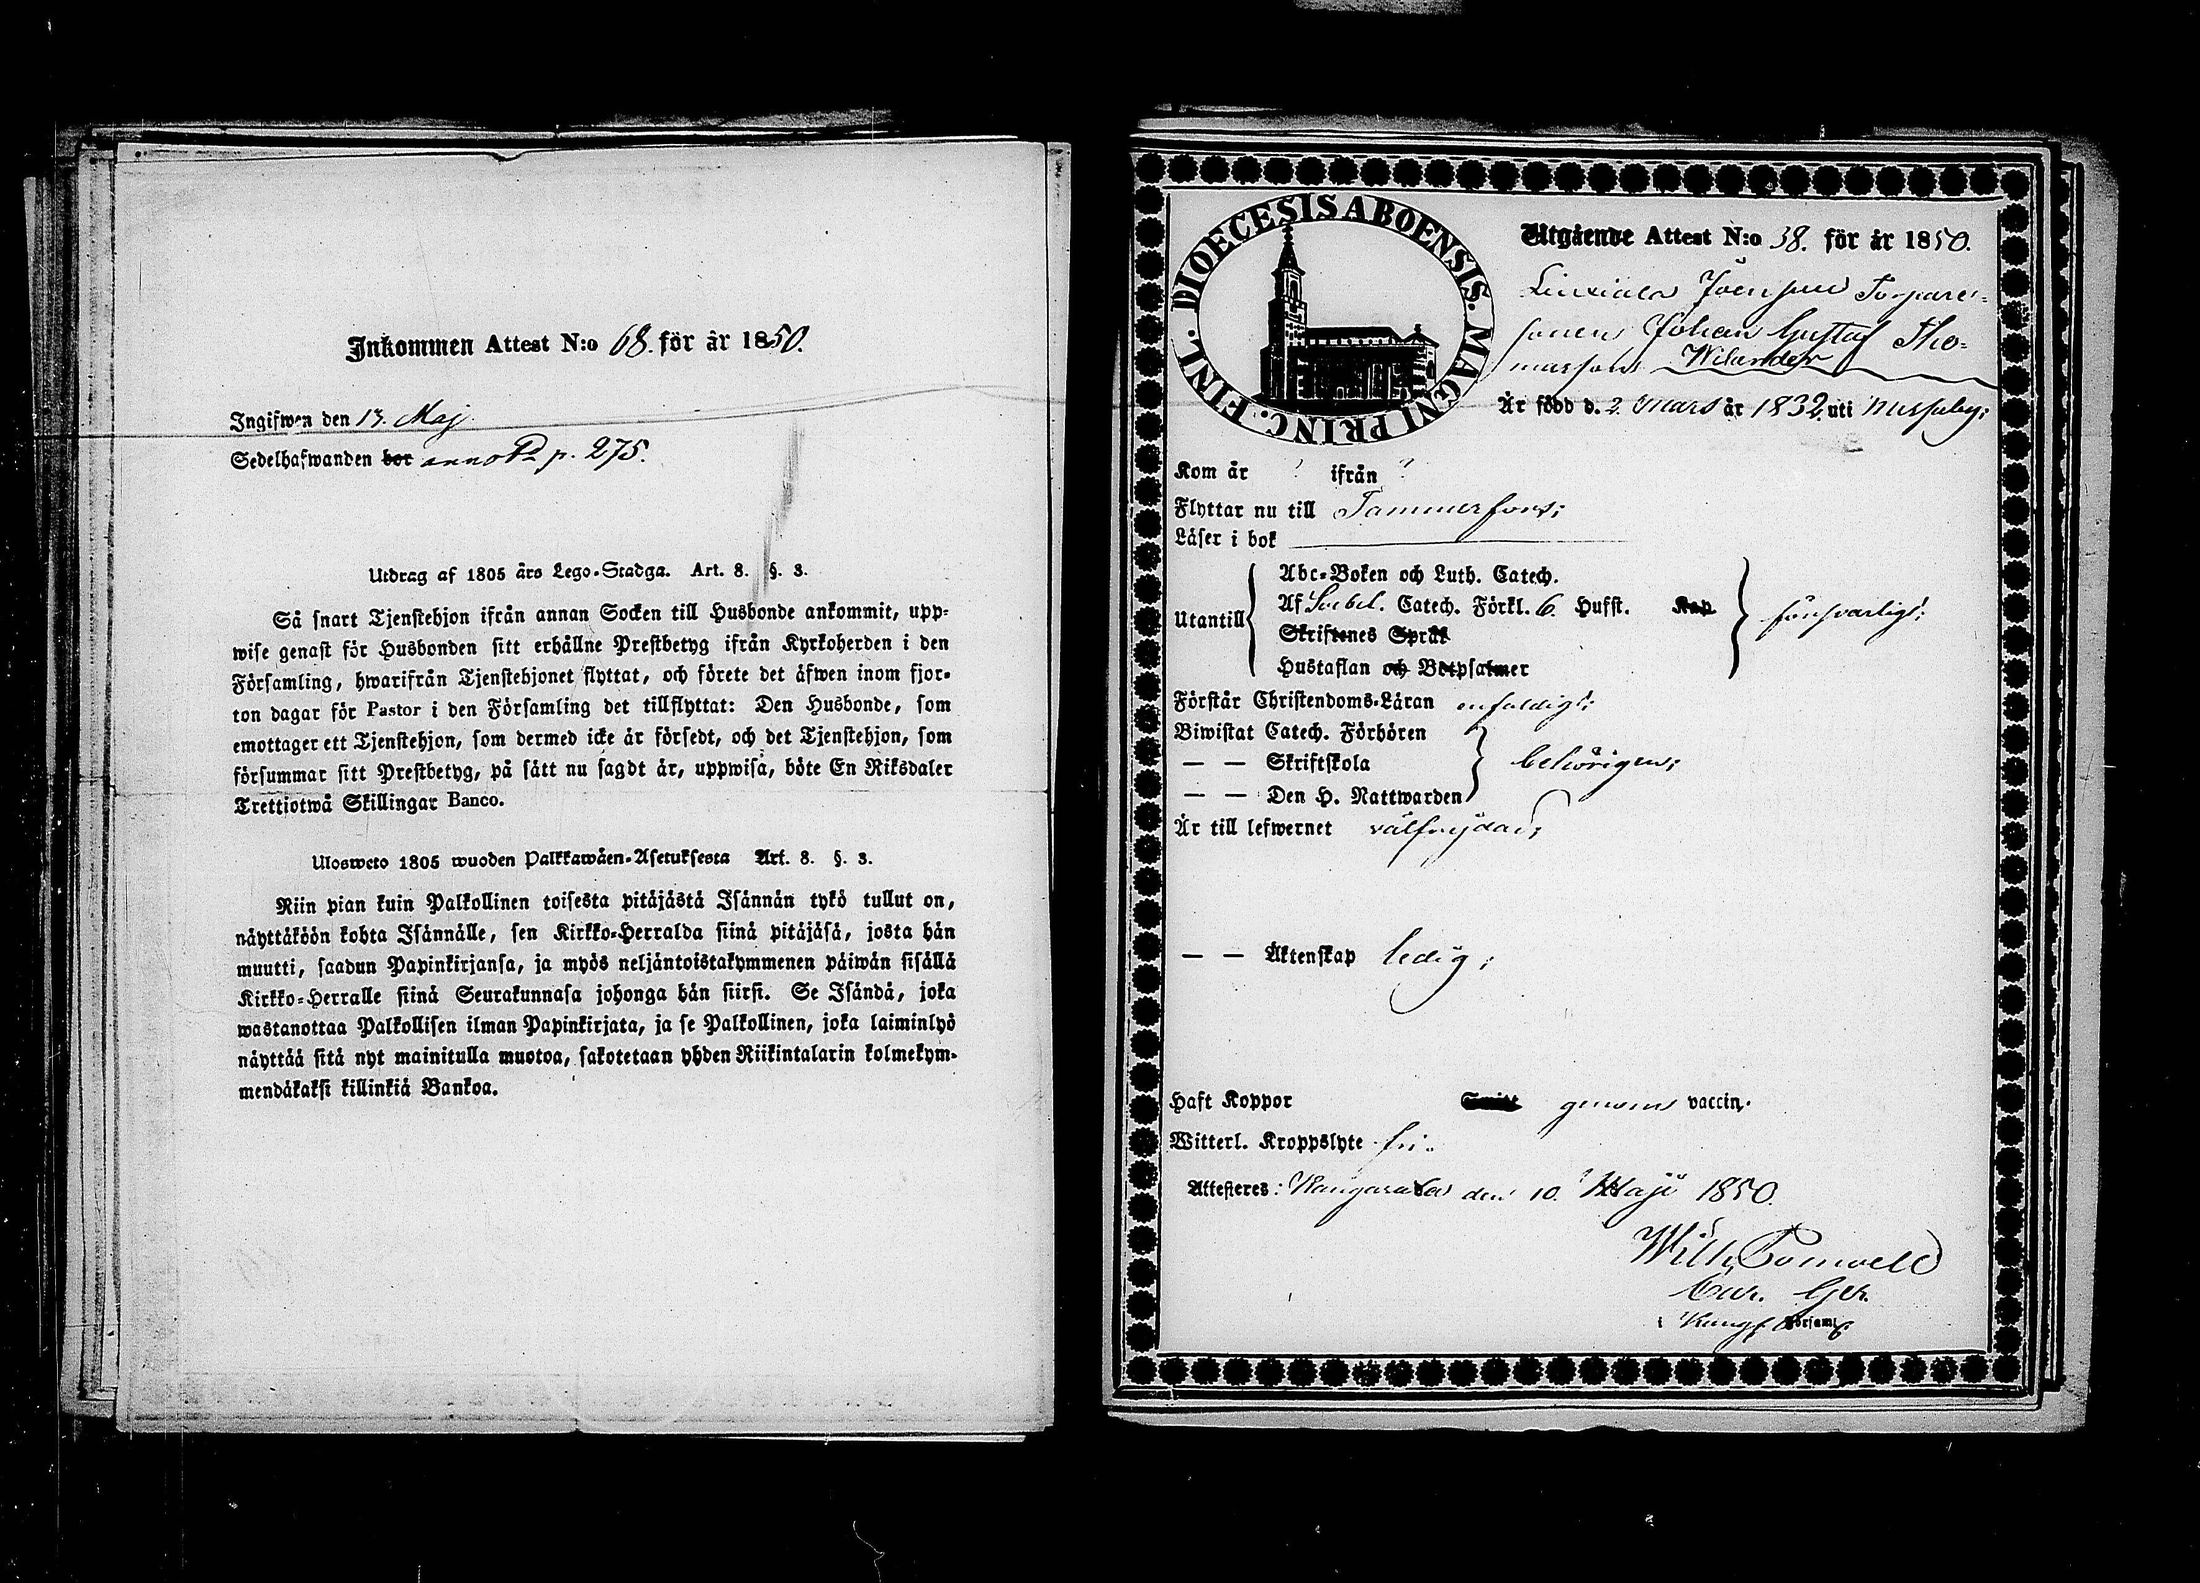 Inkommen Attest N:o 68. för år 1850.
Ingifwen den 13. Maj
Sedelhafwanden bor annot. p. 275.
Utdrag af 1805 års Lego-Stadga. Art. 8. §. 3.
Så snart Tjenstehjon ifrån annan Socken till Husbonde ankommit, upp-
wise genast för Husbonden sitt erhållne Prestbetyg ifrån Kyrkoherden i den
Församling, hwarifrån Tjenstehjonet flyttat, och förete det äfwen inom fjor-
ton dagar för Pastor i den Församling det tillflyttat: Den Husbonde, som
emottager ett Tjenstehjon, som dermed icke är försedt, och det Tjenstehjon, som
försummar sitt Prestbetyg, på sätt nu sagdt är, uppwisa, böte En Riksdaler
Trettiotwå Skillingar Banco.
Ulosweto 1805 wuoden Palkkawäen-Asetuksesta Art. 8. §. 3.
Niin pian kuin Palkollinen toisesta pitäjästä Isännän tykö tullut on,
näyttäköön kohta Isännälle, sen Kirkko-Herralda siinä pitäjäsä, josta hän
muutti, saadun Papinkirjansa, ja myös neljäntoistakymmenen päiwän sisällä
Kirkko-Herralle siinä Seurakunnasa johonga hän siirsi. Se Isändä, joka
wastanottaa Palkollisen ilman Papinkirjata, ja se Palkollinen, joka laiminlyö
näyttää sitä nyt mainitulla muotoa, sakotetaan yhden Riikintalarin kolmekym-
mendäkaksi killinkiä Bankoa.
DIOECESIS ABOENSIS. MAGNI PRINC. FINL.
Utgående Attest N:o 38. för år 1850.
Torpare-
sonen Johan Gustaf Tho-
masson Welander
Är född d. 2. Mars år 1832, uti
Kom år ? ifrån ?
Flyttar nu till Tammerfors;
Läser i bok
Utantill
Abc-Boken och Luth. Catech.
Af Svebel. Catech. Förkl. 6. Hufst. Kap
Skriftenes Språk
Hustaflan och Botpsalmer
försvarligt;
Förstår Christendoms-Läran enfaldigt;
Biwistat Catech. Förhören
— — Skriftskola
— — Den H. Nattwarden
behörigen;
Är till lefwernet välfrejdad;
— — Äktenskap ledig;
Haft Koppor genom vaccin.
Witterl. Kroppslyte fri.
Attesteras: Kangasala den 10. Maji 1850.
Wilh.
Församl.